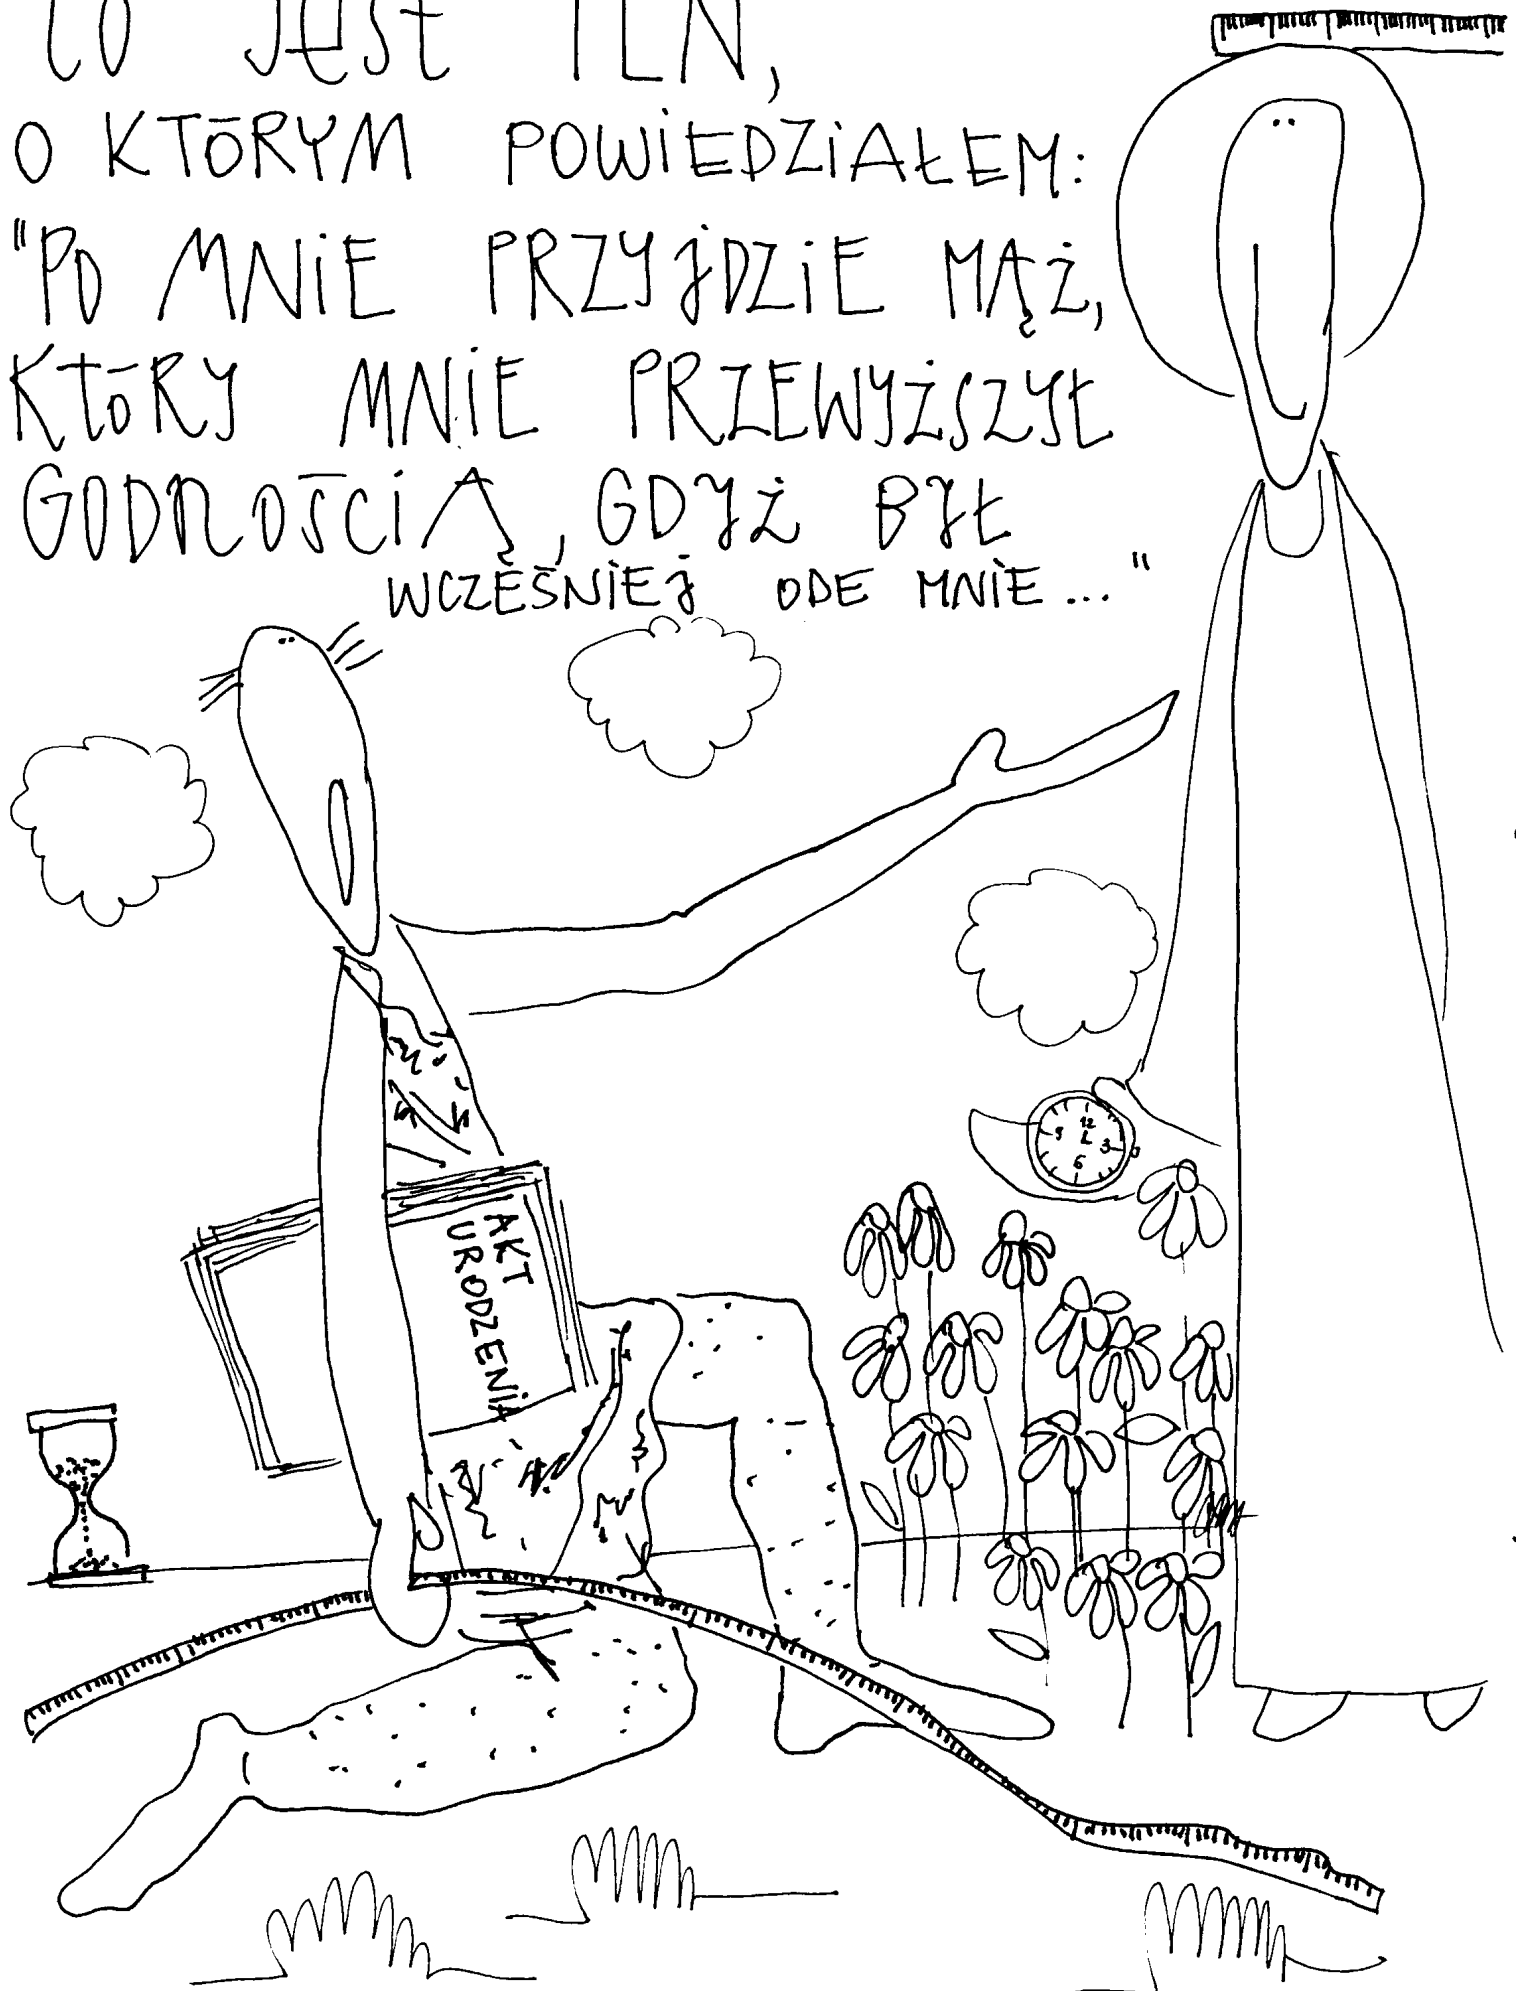 TO JEST TEN,
O KTÓRYM POWIEDZIAŁEM:
"PO MNIE PRZYJDZIE MĄŻ,
KTÓRY MNIE PRZEWYŻSZYŁ
GODNOŚCIĄ, GDYŻ BYŁ
WCZEŚNIEJ ODE MNIE..."
12
9 3
6
AKT
URODZENIA